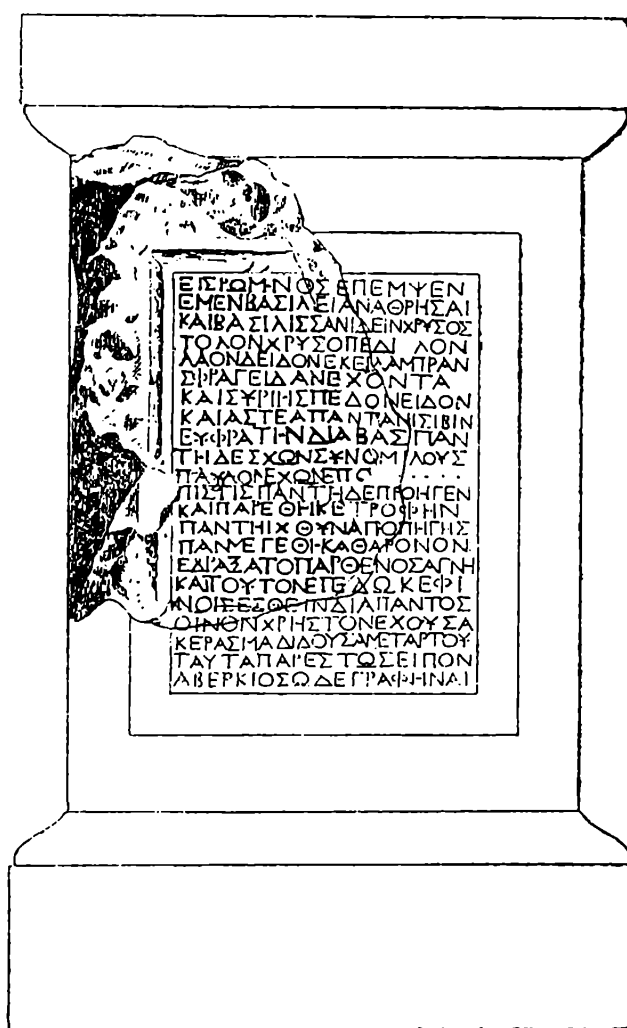 ΕΙΣΡΩΜΗΝΟΣΕΠΕΜΨΕΝ
ΕΜΕΝΒΑΣΙΛΕΙΑΝΑΘΡΗΣΑΙ
ΚΑΙΒΑΣΙΛΙΣΣΑΝΙΔΕΙΝΧΡΥΣΟΣ
ΤΟΛΟΝΧΡΥΣΟΠΕΔΙ ΛΟΝ
ΛΑΟΝΔΕΙΔΟΝΕΚΕΙΛΑΜΠΡΑΝ
ΣΦΡΑΓΕΙΔΑΝΕΧΟΝΤΑ
ΚΑΙΣΥΡΙΗΣΠΕΔΟΝΕΙΔΟΝ
ΚΑΙΑΣΤΕΑΠΑΝΤΑΝΙΣΙΒΙΝ
ΕΥΦΡΑΤΗΝΔΙΑΒΑΣ ΠΑΝ
ΤΗΔΕΣΧΩΝΣΥΝΟΜΙΛΟΥΣ
ΠΑΥΛΟΝΕΧΩΝΕΠΟ . . . .
ΠΙΣΤΙΣΠΑΝΤΗΔΕΠΡΟΗΓΕΝ
ΚΑΙΠΑΡΕΘΗΚΕΤΡΟΦΗΝ
ΠΑΝΤΗΙΧΘΥΝΑΠΟΠΗΓΗΣ
ΠΑΝΜΕΓΕΘΗΚΑΘΑΡΟΝΟΝ
ΕΔΡΑΞΑΤΟΠΑΡΘΕΝΟΣΑΓΝΗ
ΚΑΙΤΟΥΤΟΝΕΠΕΔΩΚΕΦΙ
ΛΟΙΣΕΣΘΕΙΝΔΙΑΠΑΝΤΟΣ
ΟΙΝΟΝΧΡΗΣΤΟΝΕΧΟΥΣΑ
ΚΕΡΑΣΜΑΔΙΔΟΥΣΑΜΕΤΑΡΤΟΥ
ΤΑΥΤΑΠΑΡΕΣΤΩΣΕΙΠΟΝ
ΑΒΕΡΚΙΟΣΩΔΕΓΡΑΦΗΝΑΙ